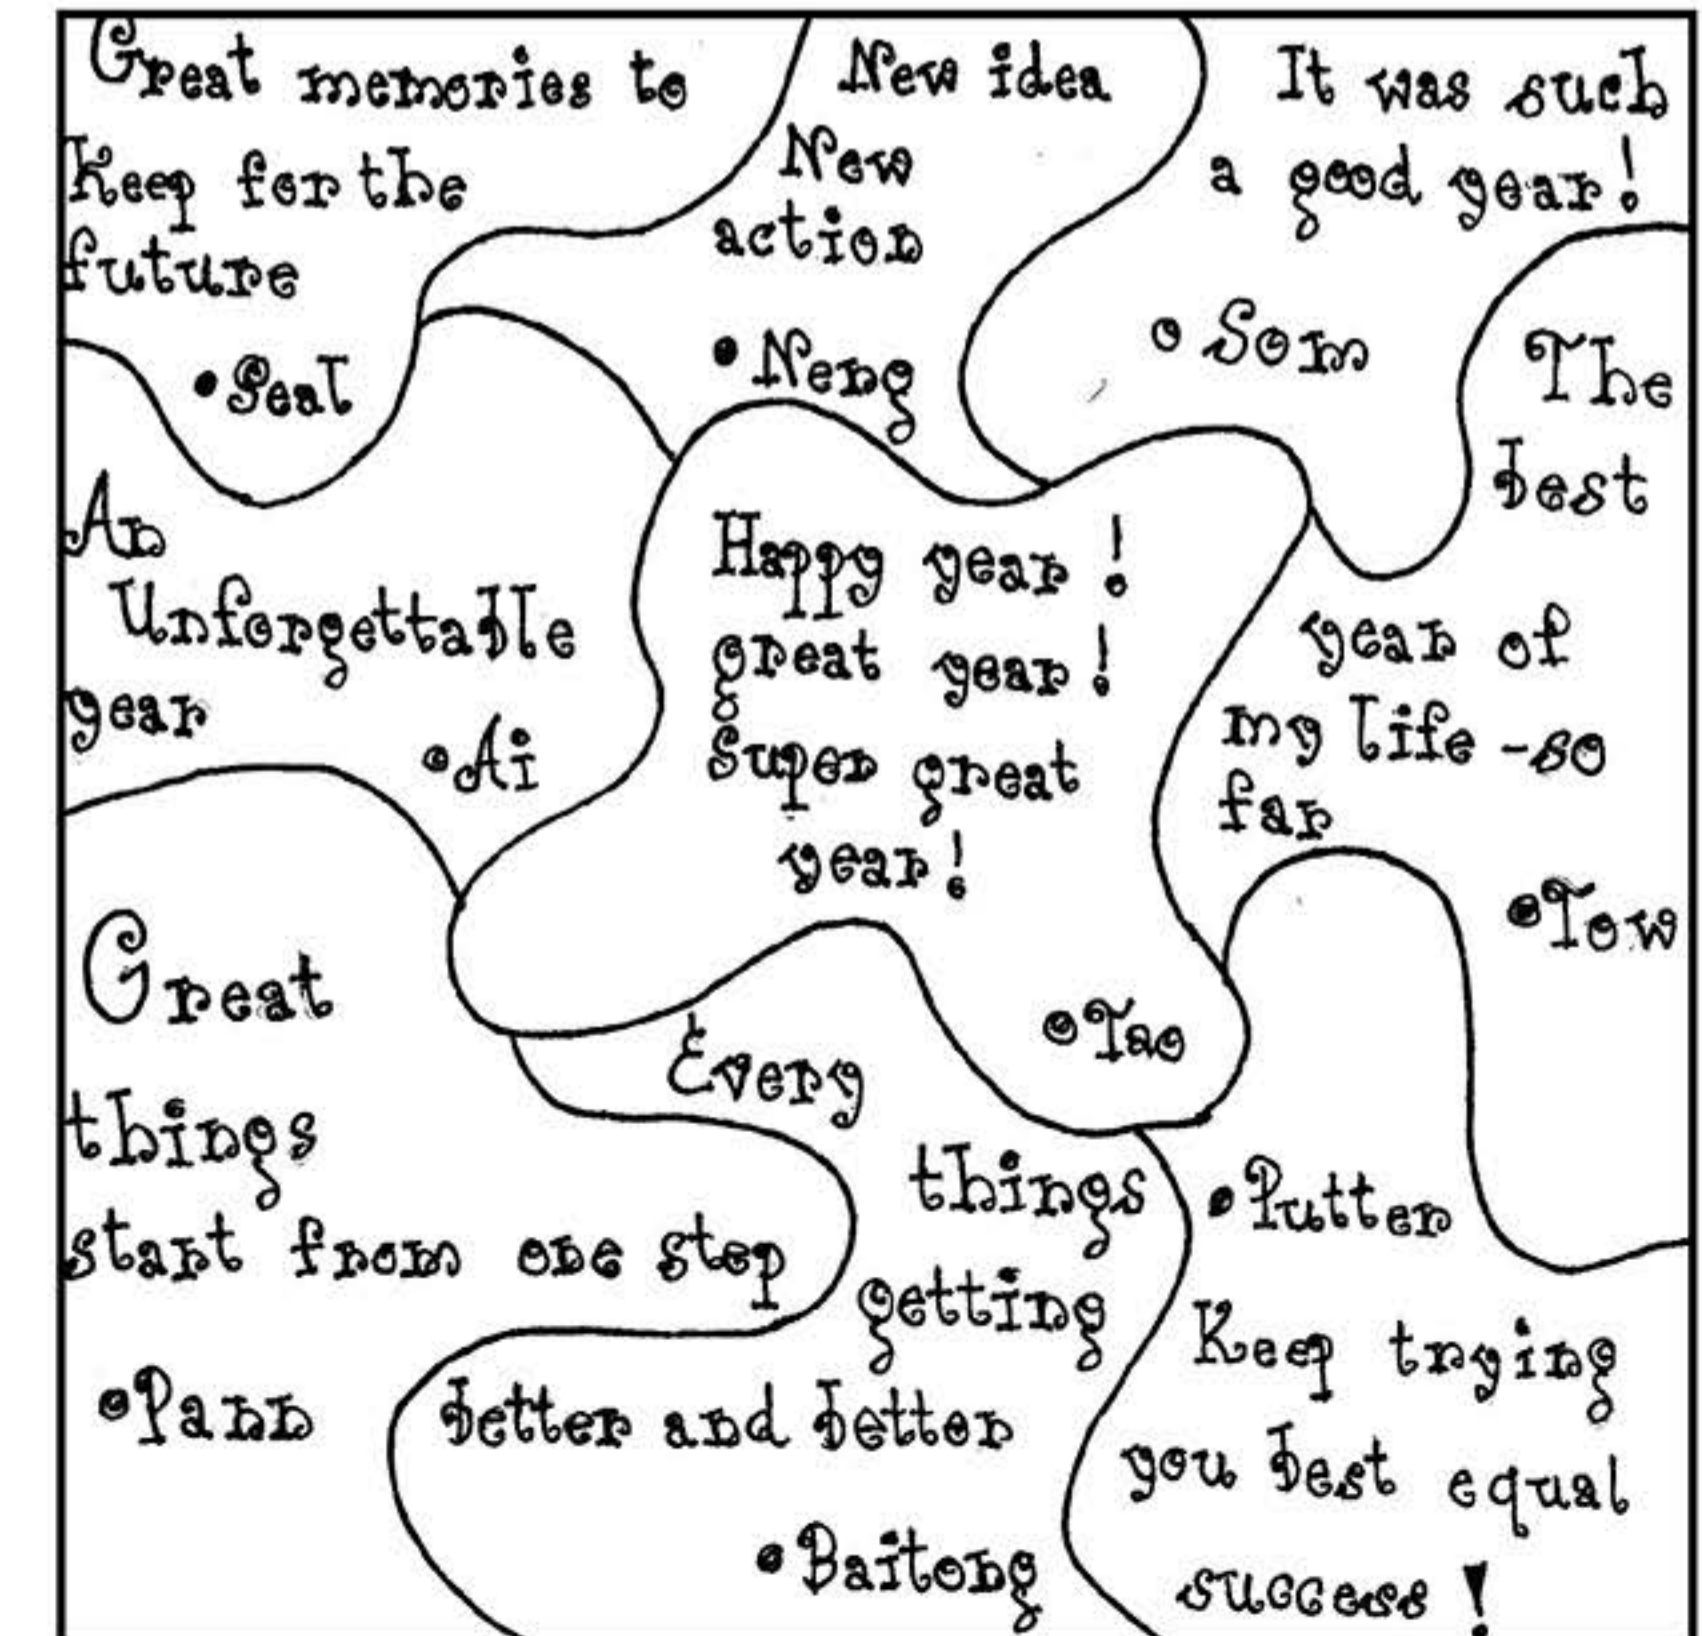 Great memories to
Keep for the
future
•Seal
New idea
New
action
•Neng
It was such
a good year!
•Som
The
best
year of
my life -so
far
•Tow
An
Unforgettable
year
•Ai
Happy year!
great year!
Super great
year!
•Tao
Great
things
start from one step
•Pann
Every
things
getting
better and better
•Baitong
•Putter
Keep trying
you best equal
success!